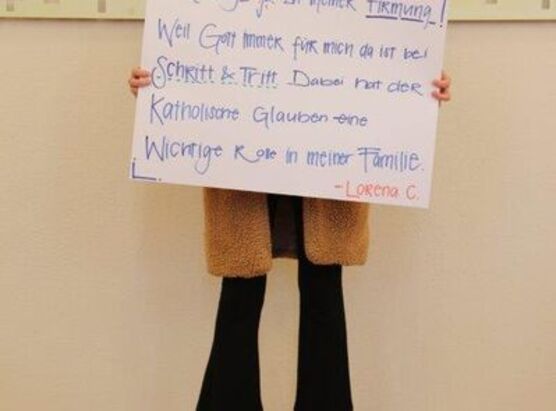 zu meiner Firmung!
Weil Gott immer für mich da ist bei
Schritt & Tritt. Dabei hat der
Katholische Glauben eine
Wichtige Rolle in meiner Familie.
- Lorena C.